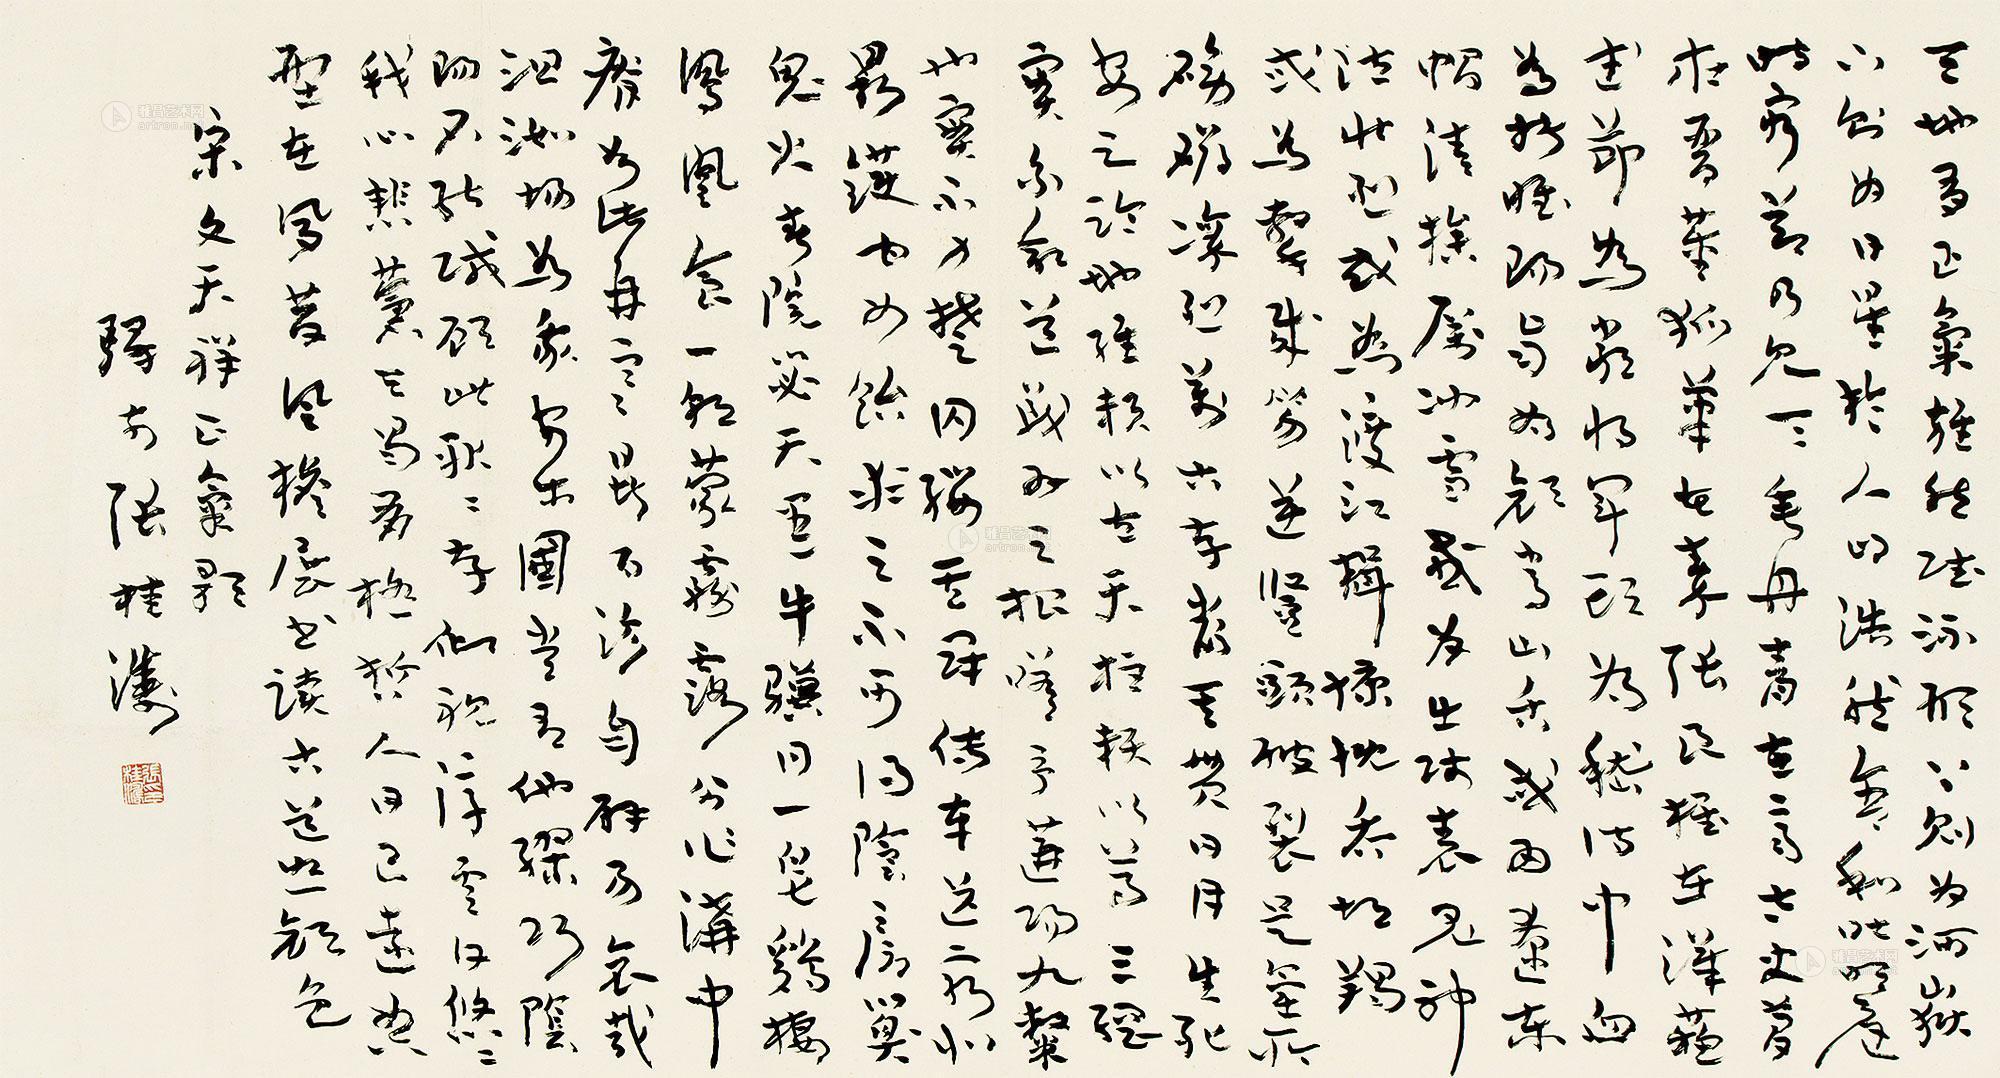 天地有正氣雜然賦流形下則為河嶽
上則為日星於人曰浩然含和吐明庭
時窮節乃見一一垂丹青在齊太史簡
在晉董狐筆在秦張良椎在漢蘇
武節為嚴將軍頭為嵇侍中血
為張睢陽齒為顏常山舌或為遼東
帽清操厲冰雪或為出師表鬼神
泣壯烈或為渡江楫慷慨吞胡羯
或為擊賊笏逆豎頭破裂是氣所
磅礴凜烈萬古存當其貫日月生死
安足論地維賴以立天柱賴以尊三綱
實系命道義為之根嗟予遘陽九隸
也實不力楚囚纓其冠傳車送窮北
鼎鑊甘如飴求之不可得陰房闃
鬼火春院閟天黑牛驥同一皂雞棲
鳳凰食一朝蒙霧露分作溝中
瘠如此再寒暑百沴自辟易哀哉
沮洳場為我安樂國豈有他繆巧陰
陽不能賊顧此耿耿存仰視浮雲白悠悠
我心悲蒼天曷有極哲人日已遠典
型在夙昔風檐展書讀古道照顏色
宋文天祥正氣歌
張桂